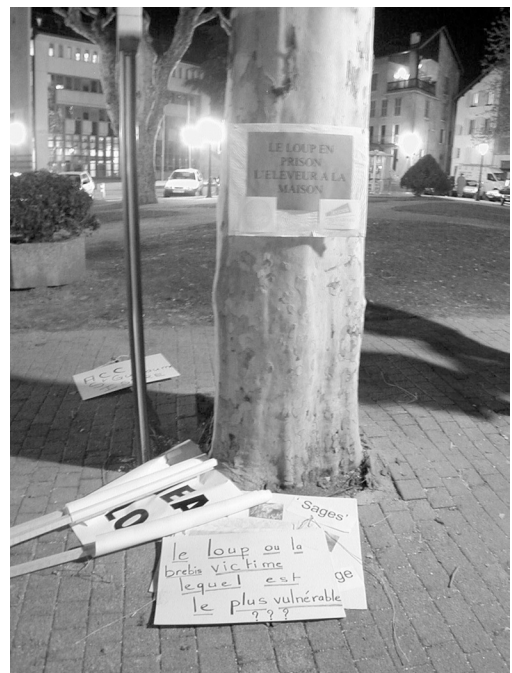 LE LOUP EN
PRISON
L'ELEVEUR A LA
MAISON
ACC
EA
LO
'Sages'
ge
le loup ou la
brebis victime
lequel est
le plus vulnérable
???